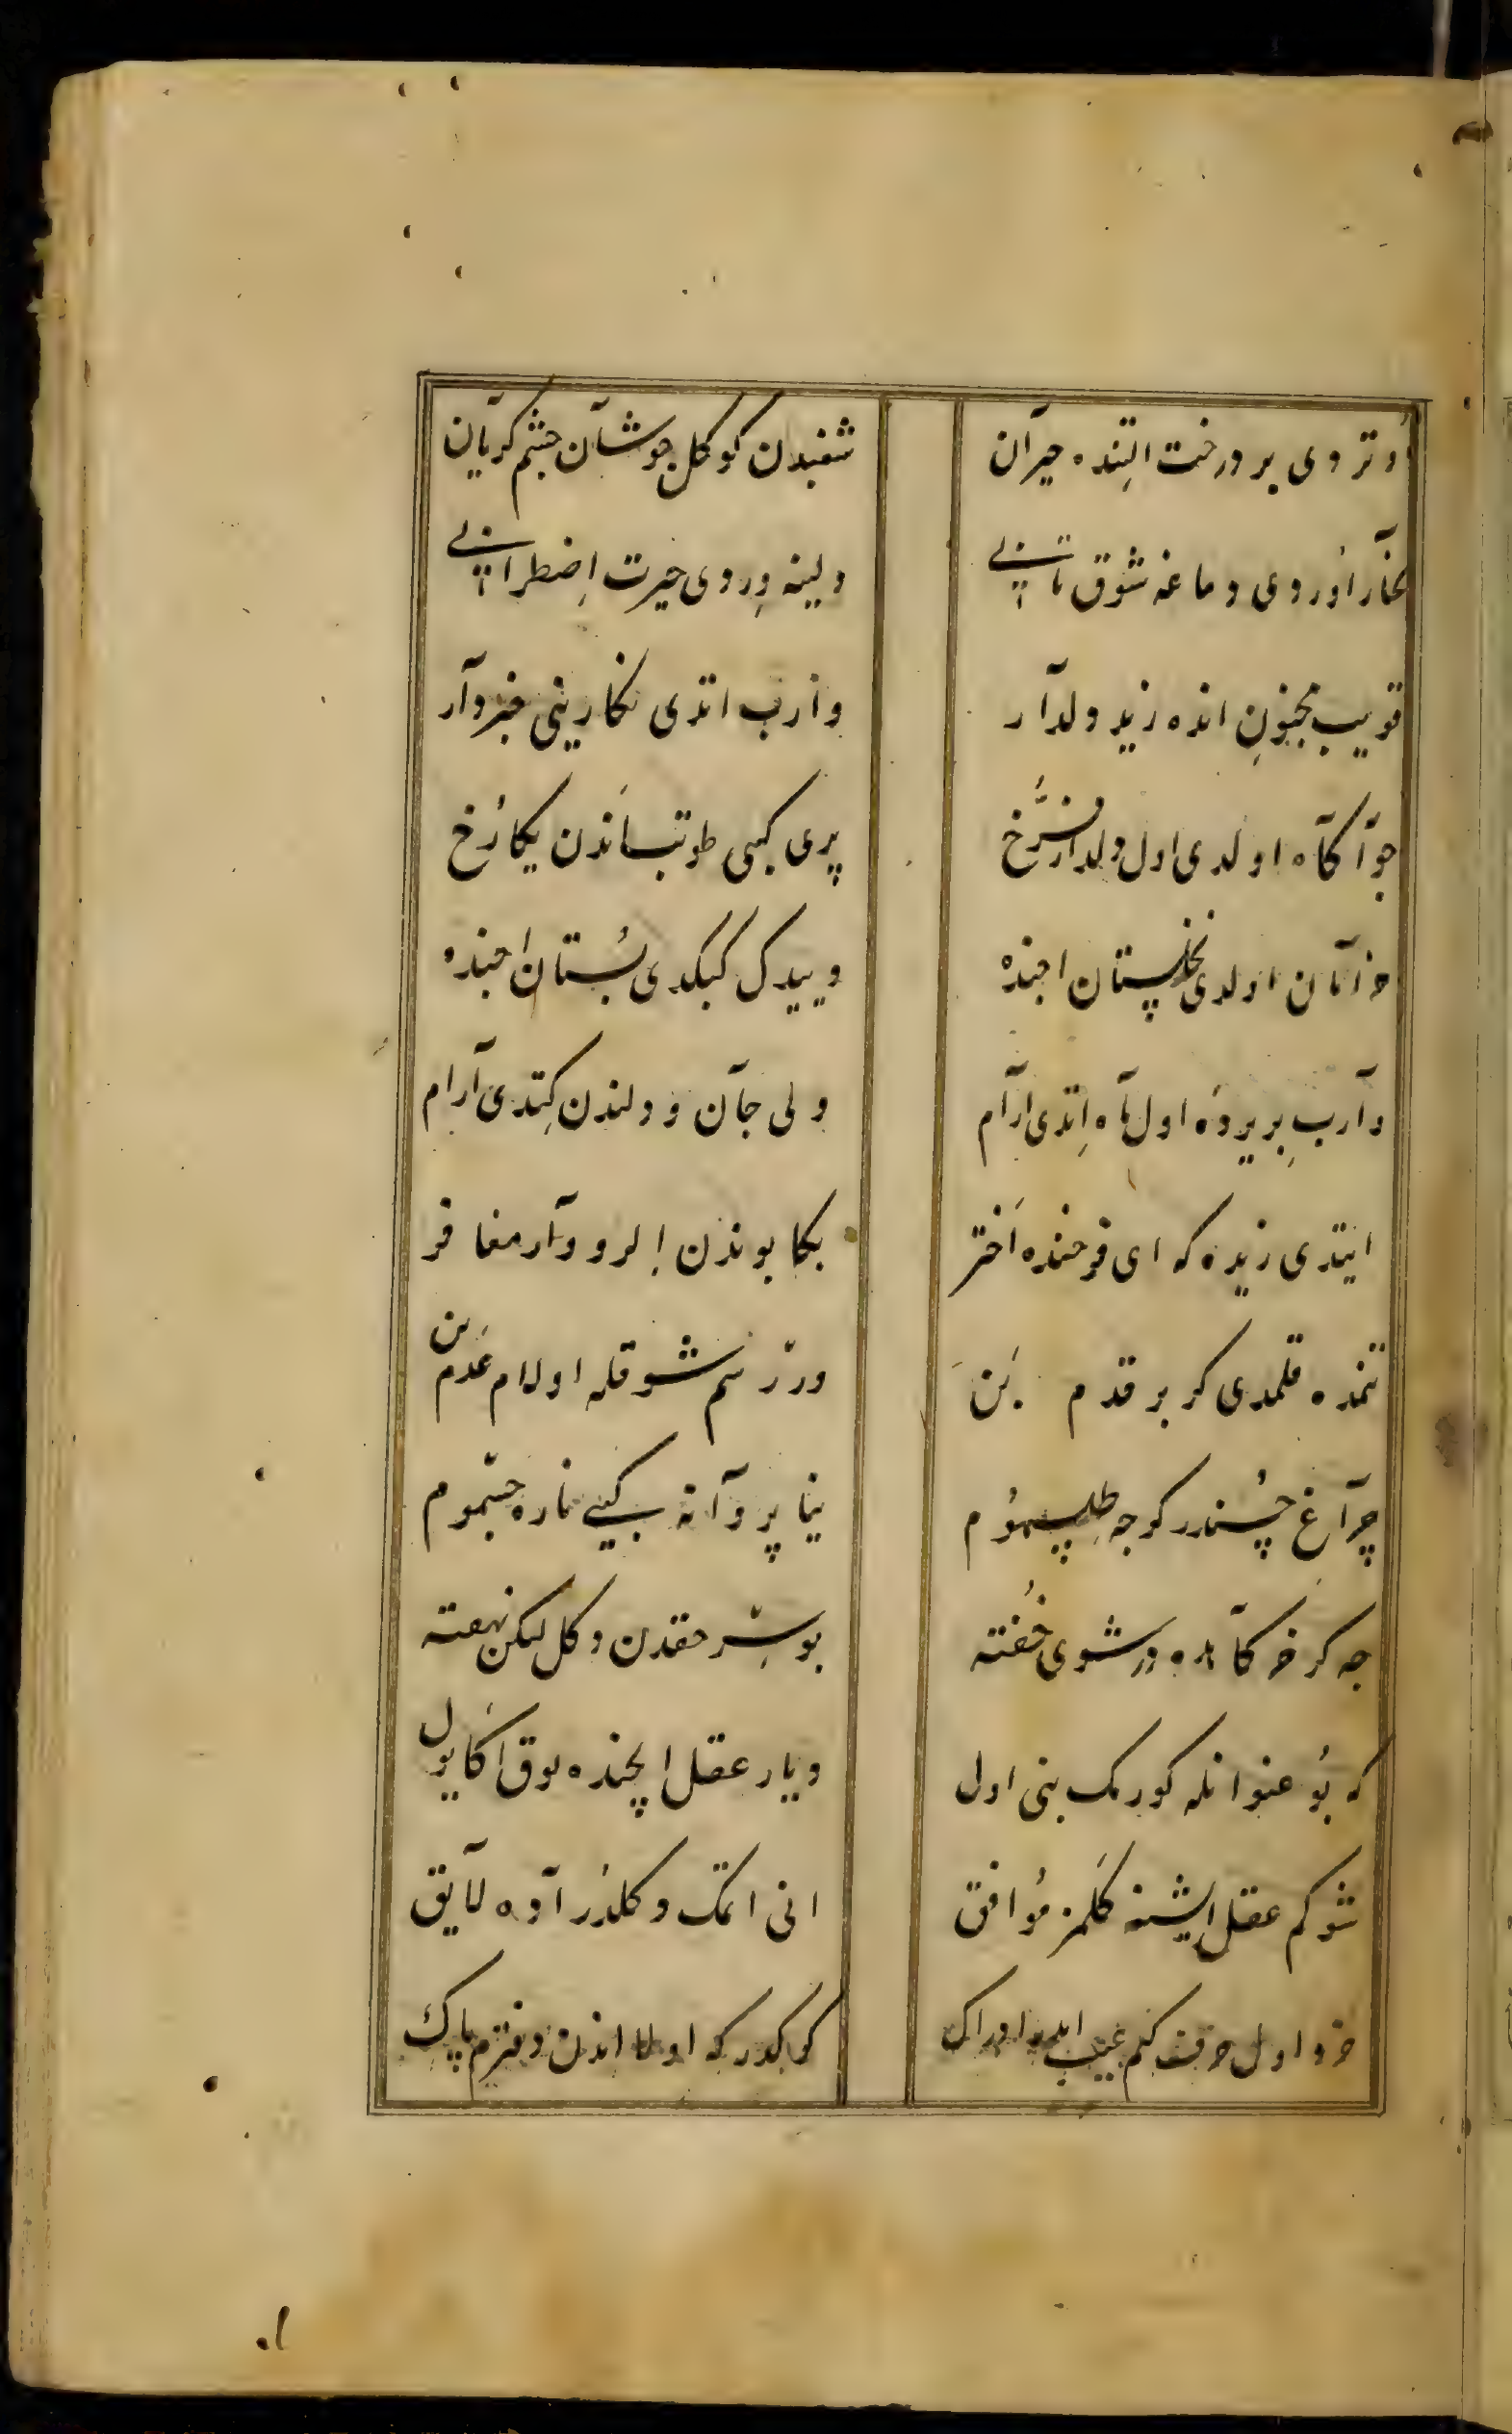 اوتردی بر درخت التنده حیران شغبدن کوکل جوشان چشم کریان
بخار اوردی دماغه شوق تابی دلینه وردی حیرت اضطرابی
قویب مجنون انده زید دلدار وارب اتدی نکارینی خبردار
جو آکاه اولدی اول دلدار فرخ پری کبی طوتب اندن یکا رخ
خرامان اولدی نخلستان اجنده دییدک کبک دی بستان اجنده
وارب بر یرده اول ماه اتدی ارام ولی جان و دلندن کتدی آرام
ایتدی زیده که ای فرخنده اختر بکا بوندن الرو وار مغافر
تنمده قلمدی کر بر قدم بن ورر سم شوقله اولام عدم بن
چراغ حسندر کرجه طلسموم ینا پروانه کبی ناره جسموم
جه کر خرکاهده در شوی خفته بو سر حقدن دکل لیکن نهفته
که بو عنوانله کورمک بنی اول دیار عقل ایچنده یوق اکا یول
شو کم عقل ایشنه کلمز موافق انی اتمک دکلدر آده لایق
خرد اول حرفه کم عیب ایلیه ادراک کرکدر که اولا اندن دفترم پاک